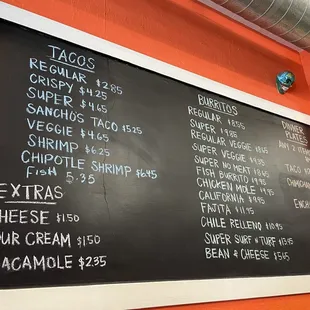 TACOS
REGULAR $2.85
CRISPY $4.25
SUPER $4.65
SANCHO'S TACO $5.25
VEGGIE $4.65
SHRIMP $6.25
CHIPOTLE SHRIMP $6.45
FISH 5.35
EXTRAS
CHEESE $1.50
OUR CREAM $1.50
ACAMOLE $2.35
BURRITOS
REGULAR $8.55
SUPER $9.85
REGULAR VEGGIE
SUPER VEGGIE
SUPER NO MEAT
FISH BURRITO
CHICKEN MOLE
CALIFORNIA
FAJITA $11.95
CHILE RELLENO
SUPER SURF & TURF
BEAN & CHEESE
DINNER
PLATES
TACO
ENCH